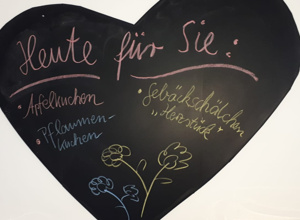 Heute für Sie:
• Apfelkuchen
• Pflaumen-
kuchen
• Gebäckschälchen
„Herzstück“